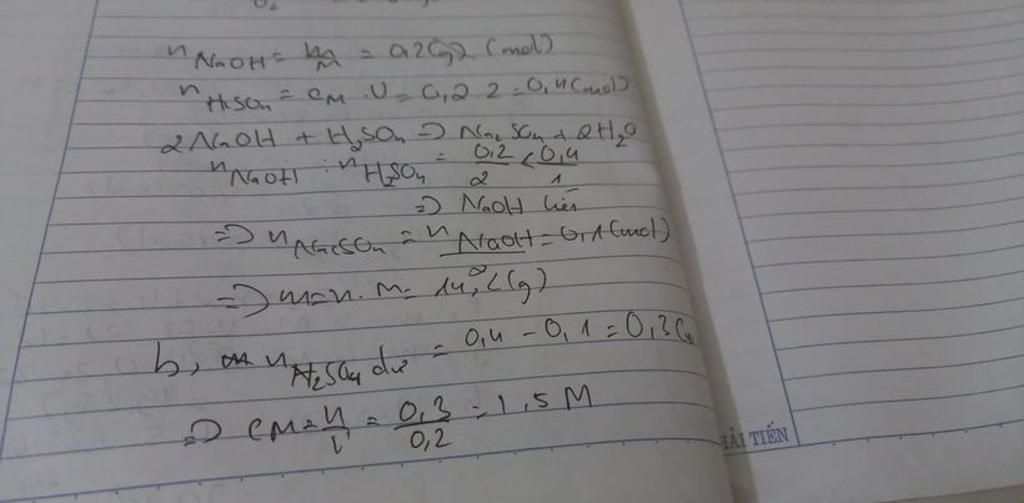 n NaOH = m/M = 0,2 (mol)
n H₂SO₄ = CM . V = 0,2 . 2 = 0,4 (mol)
2NaOH + H₂SO₄ => Na₂SO₄ + 2H₂O
n NaOH : n H₂SO₄ = 0,2/2 < 0,4/1
=> NaOH hết
=> n Na₂SO₄ = n NaOH = 0,1 (mol)
=> m = n . M = 14,2 (g)
b, n H₂SO₄ dư = 0,4 - 0,1 = 0,3
=> CM = n/V = 0,3/0,2 = 1,5 M
HẢI TIẾN